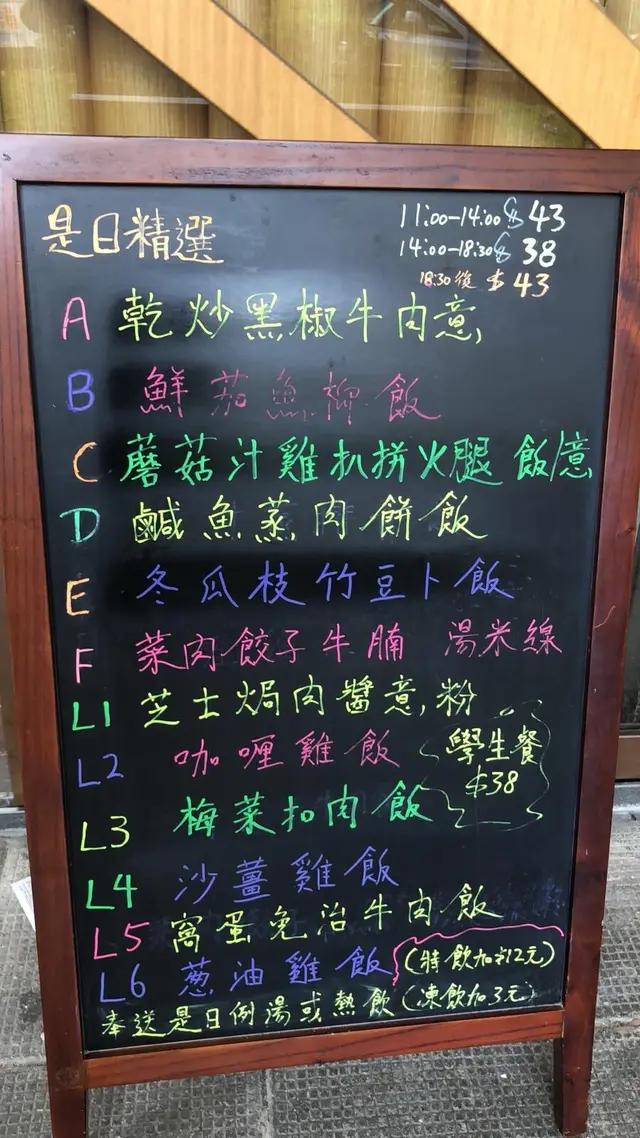 是日精選
11:00-14:00 $43
14:00-18:30 $38
18:30後 $43
A 乾炒黑椒牛肉意,
B 鮮茄魚柳飯
C 蘑菇汁雞扒拼火腿 飯/意
D 鹹魚蒸肉餅飯
E 冬瓜枝竹豆卜飯
F 菜肉餃子牛腩 湯米線
L1 芝士焗肉醬意,粉
L2 咖喱雞飯
學生餐
$38
L3 梅菜扣肉飯
L4 沙薑雞飯
L5 窩蛋免治牛肉飯
L6 葱油雞飯 (特飲加$12元)
奉送是日例湯或熱飲 (凍飲加3元)